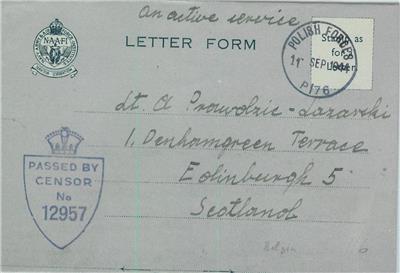 On active service
NAAFI
LETTER FORM
POLISH FORCES
11 SEP 1944
P176
Stamp as
for
Lt. A Prawdzic-Lazarski
1, Denhamgreen Terrace
Edinburgh 5
Scotland
PASSED BY
CENSOR
No
12957